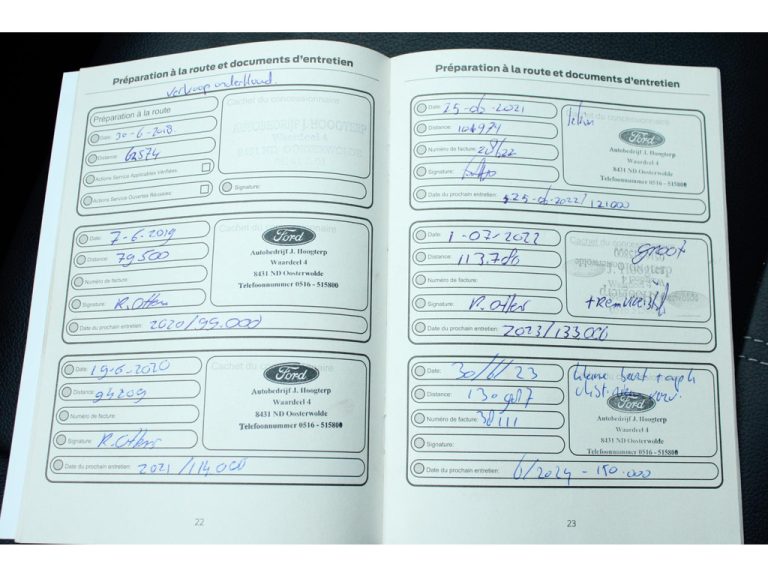 Préparation à la route et documents d'entretien
Verkoop onderhoud.
Préparation à la route
Date: 30-6-2018
Distance: 62574
Actions Service Applicables Vérifiées:
Actions Service Ouvertes Réalisées:
Cachet du concessionnaire
AUTOBEDRIJF J. HOOGTERP
Waardeel 4
8431 ND OOSTERWOLDE
Signature:
Date: 7-6-2019
Distance: 79.500
Numéro de facture:
Signature: R. Otten
Cachet du concessionnaire
Ford
Autobedrijf J. Hoogterp
Waardeel 4
8431 ND Oosterwolde
Telefoonnummer 0516 - 515800
Date du prochain entretien: 2020/99.000
Date: 19-6-2020
Distance: 94209
Numéro de facture:
Signature: R. Otten
Cachet du concessionnaire
Ford
Autobedrijf J. Hoogterp
Waardeel 4
8431 ND Oosterwolde
Telefoonnummer 0516 - 515800
Date du prochain entretien: 2021/114.000
22
Préparation à la route et documents d'entretien
Date: 25-06-2021
Distance:
Numéro de facture:
Signature:
Cachet du concessionnaire
Ford
Autobedrijf J. Hoogterp
Waardeel 4
8431 ND Oosterwolde
Telefoonnummer 0516 - 515800
Date du prochain entretien: 25-06-2022/121000
Date: 1-07-2022
Distance: 113.786
Numéro de facture:
Signature: R. Otten
Cachet du concessionnaire
groot
Date du prochain entretien: 2023/133.000
Date: 30/6/23
Distance:
Numéro de facture:
Signature:
Kleine beurt + apk
Ford
Autobedrijf J. Hoogterp
Waardeel 4
8431 ND Oosterwolde
Telefoonnummer 0516 - 515800
Date du prochain entretien: 6/2024 - 150.000
23